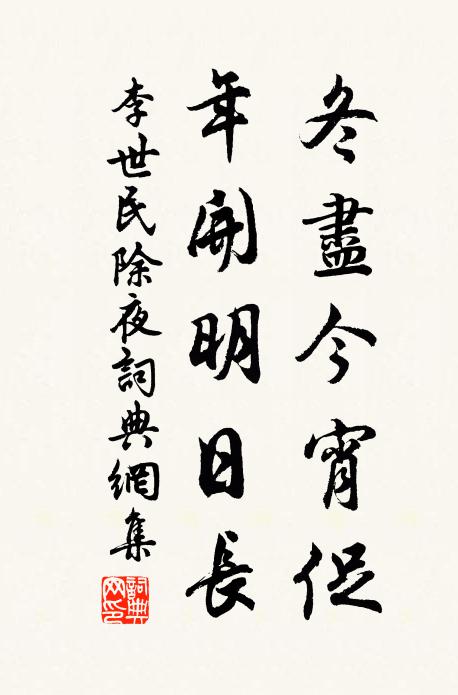 冬盡今宵促
年開明日長
李世民除夜詞典網集
詞典網印